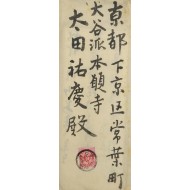 京都下京区常葉町
大谷派本願寺
太田祐慶殿